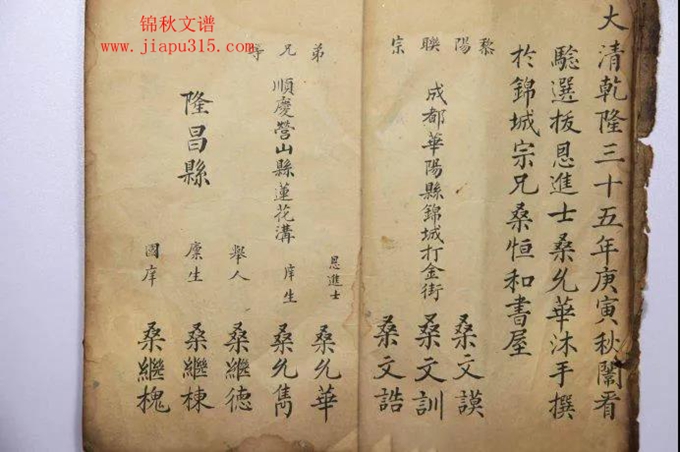 锦秋文谱
www.jiapu315.com
大清乾隆三十五年庚寅秋闈看
騐選拔恩進士桑允華沐手撰
於錦城宗兄桑恒和書屋
黎陽聯宗
成都華陽縣錦城打金街
桑文謨
桑文訓
桑文誥
弟兄等
順慶營山縣蓮花溝
恩進士 桑允華
庠生 桑允雋
隆昌縣
舉人 桑繼德
廪生 桑繼棟
國庠 桑繼槐